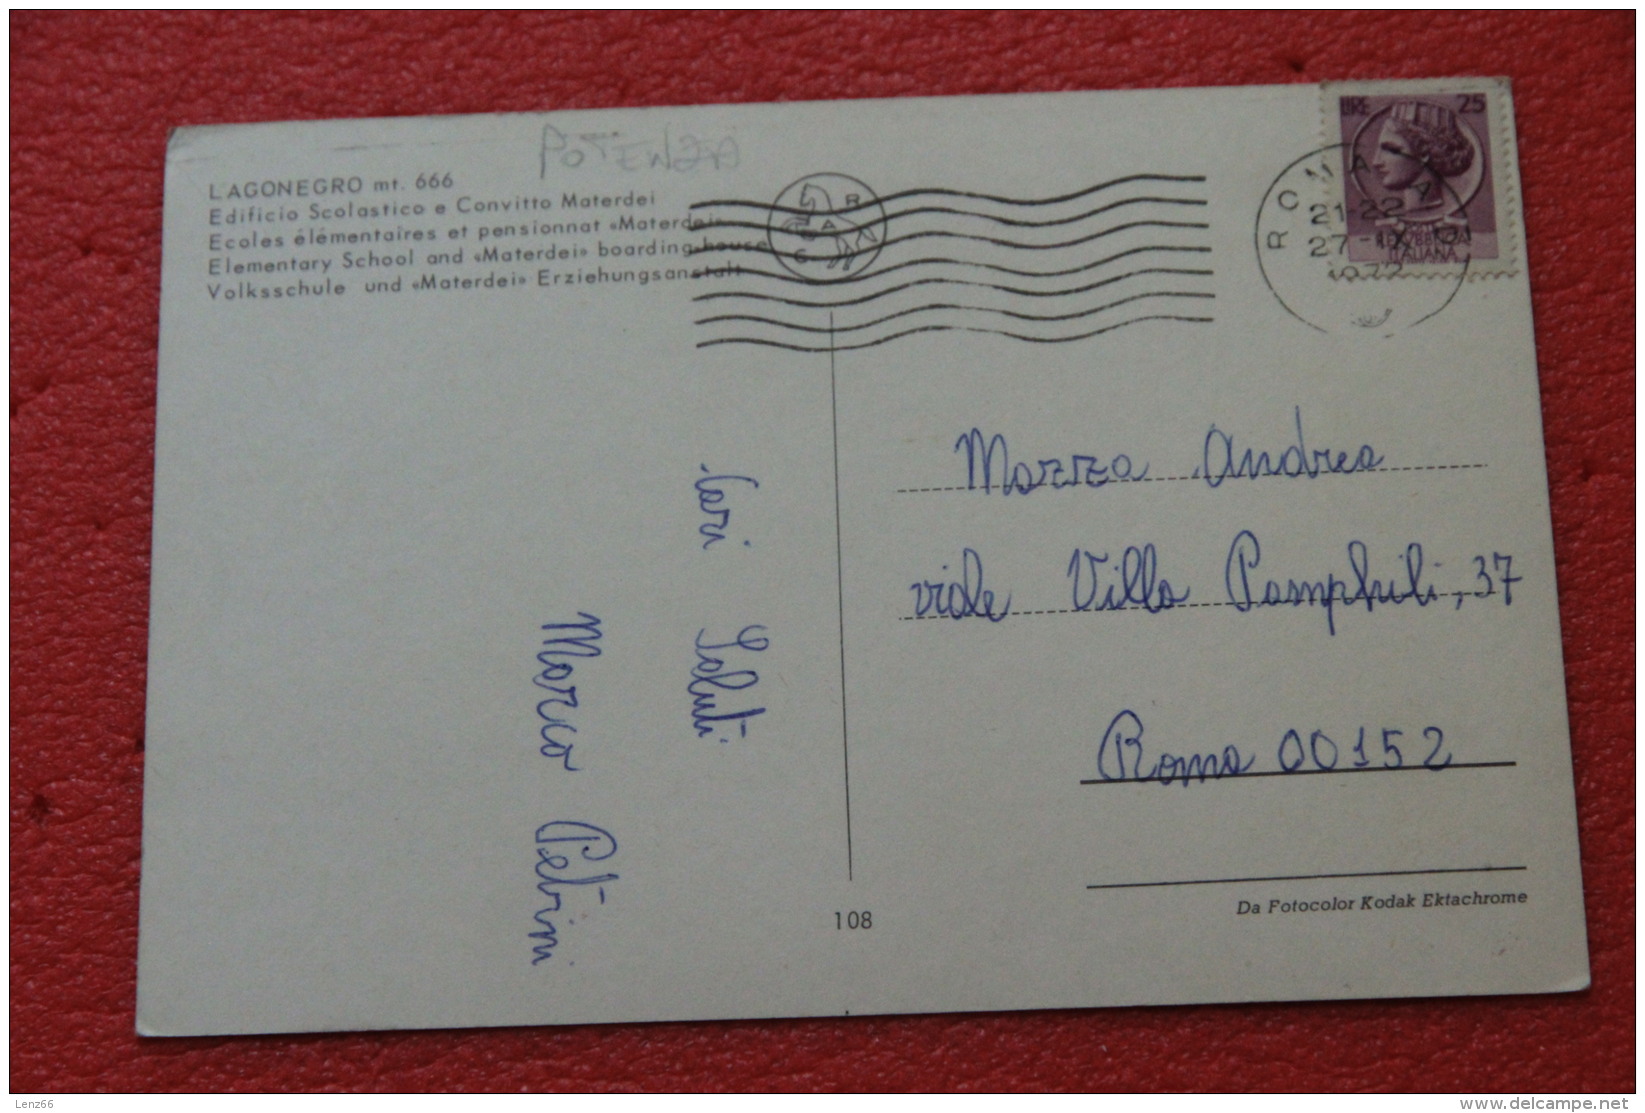 POTENZA
LAGONEGRO mt. 666
Edificio Scolastico e Convitto Materdei
Ecoles élémentaires et pensionnat «Materdei»
Elementary School and «Materdei» boarding-house
Volksschule und «Materdei» Erziehungsanstalt
R
A
G
ROMA A.
21-22
27-
1972
LIRE 25
REPUBBLICA
ITALIANA
Cari Saluti
Marco Petrini
Mazza Andrea
viale Villa Pamphili, 37
Roma 00152
108
Da Fotocolor Kodak Ektachrome
Lenz66
www.delcampe.net